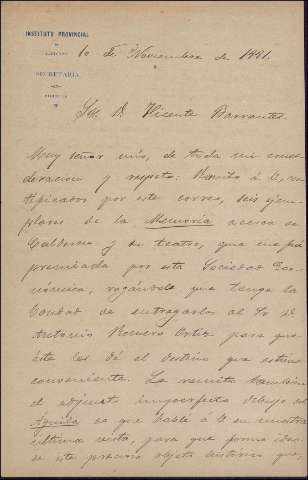 INSTITUTO PROVINCIAL
DE
SECRETARÍA
10 de Noviembre de 1881.
Sr. D. Vicente Barrantes
Muy señor mio, de toda mi consi-
deracion y respeto: Remito á V, cer-
tificados por este correo, seis ejem-
plares de la Memoria acerca de
Calderon y su teatro, que me fué
premiada por esta Sociedad Eco-
nómica, rogándole que tenga la
bondad de entregarlos al Sr D.
Antonio Romero Ortiz para que
éste les dé el destino que estime
conveniente. Le remito tambien
el adjunto imperfecto dibujo del
Águila de que hablé á V en nuestra
ultima vista, para que forme idea
de este precioso objeto histórico que,